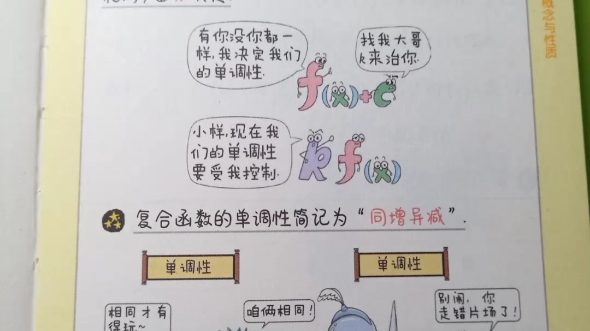 有你没你都一
样,我决定我们
的单调性.
找我大哥
k来治你.
f(x)+c
小样,现在我
们的单调性
要受我控制.
k f(x)
复合函数的单调性简记为“同增异减”.
单调性
单调性
相同才有
得玩~
咱俩相同!
别闹,你
走错片场了!
概念与性质